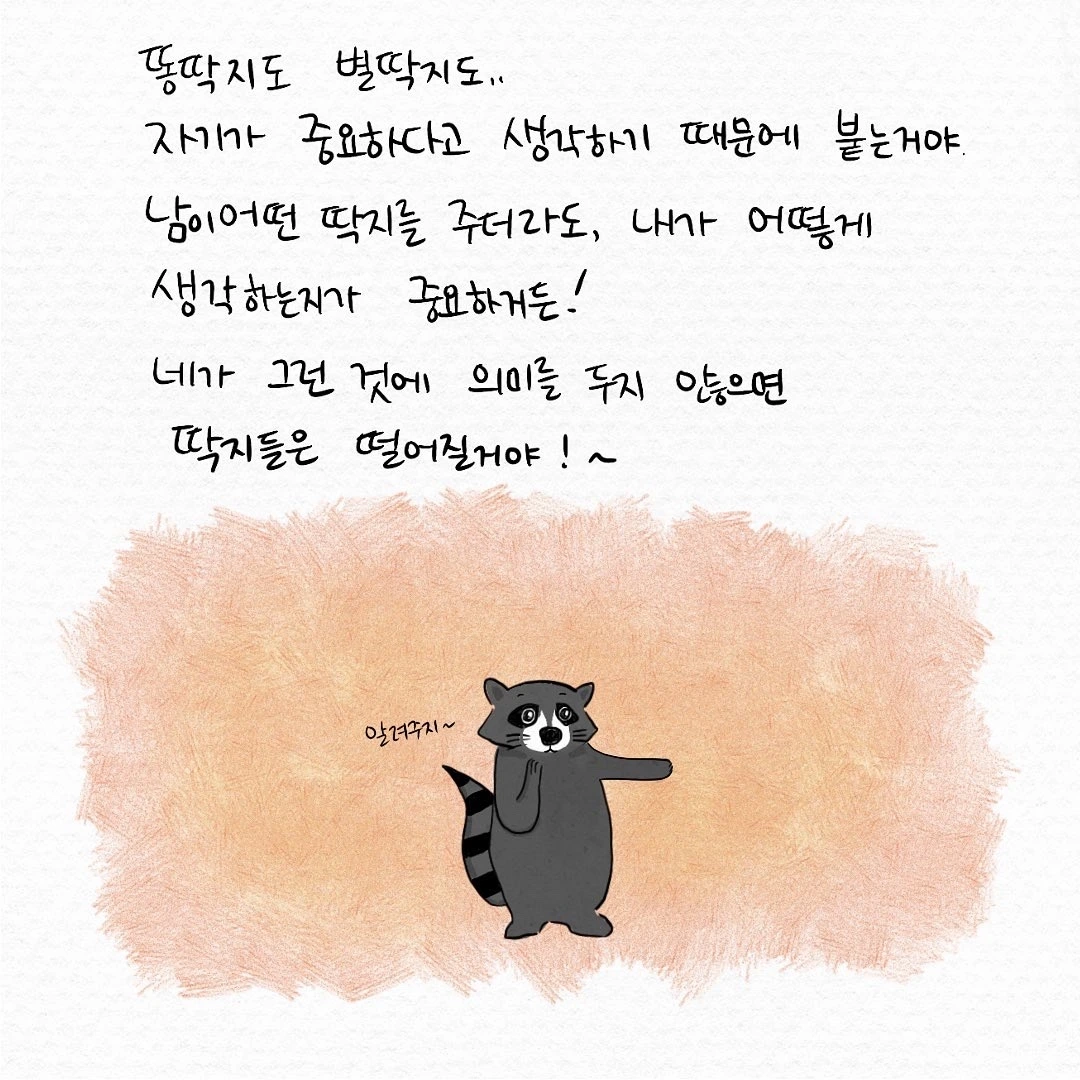 똥딱지도 별딱지도..
자기가 중요하다고 생각하기 때문에 붙는거야.
남이어떤 딱지를 주더라도, 내가 어떻게
생각하는지가 중요하거든!
네가 그런 것에 의미를 두지 않으면
딱지들은 떨어질거야!~
알려주지~